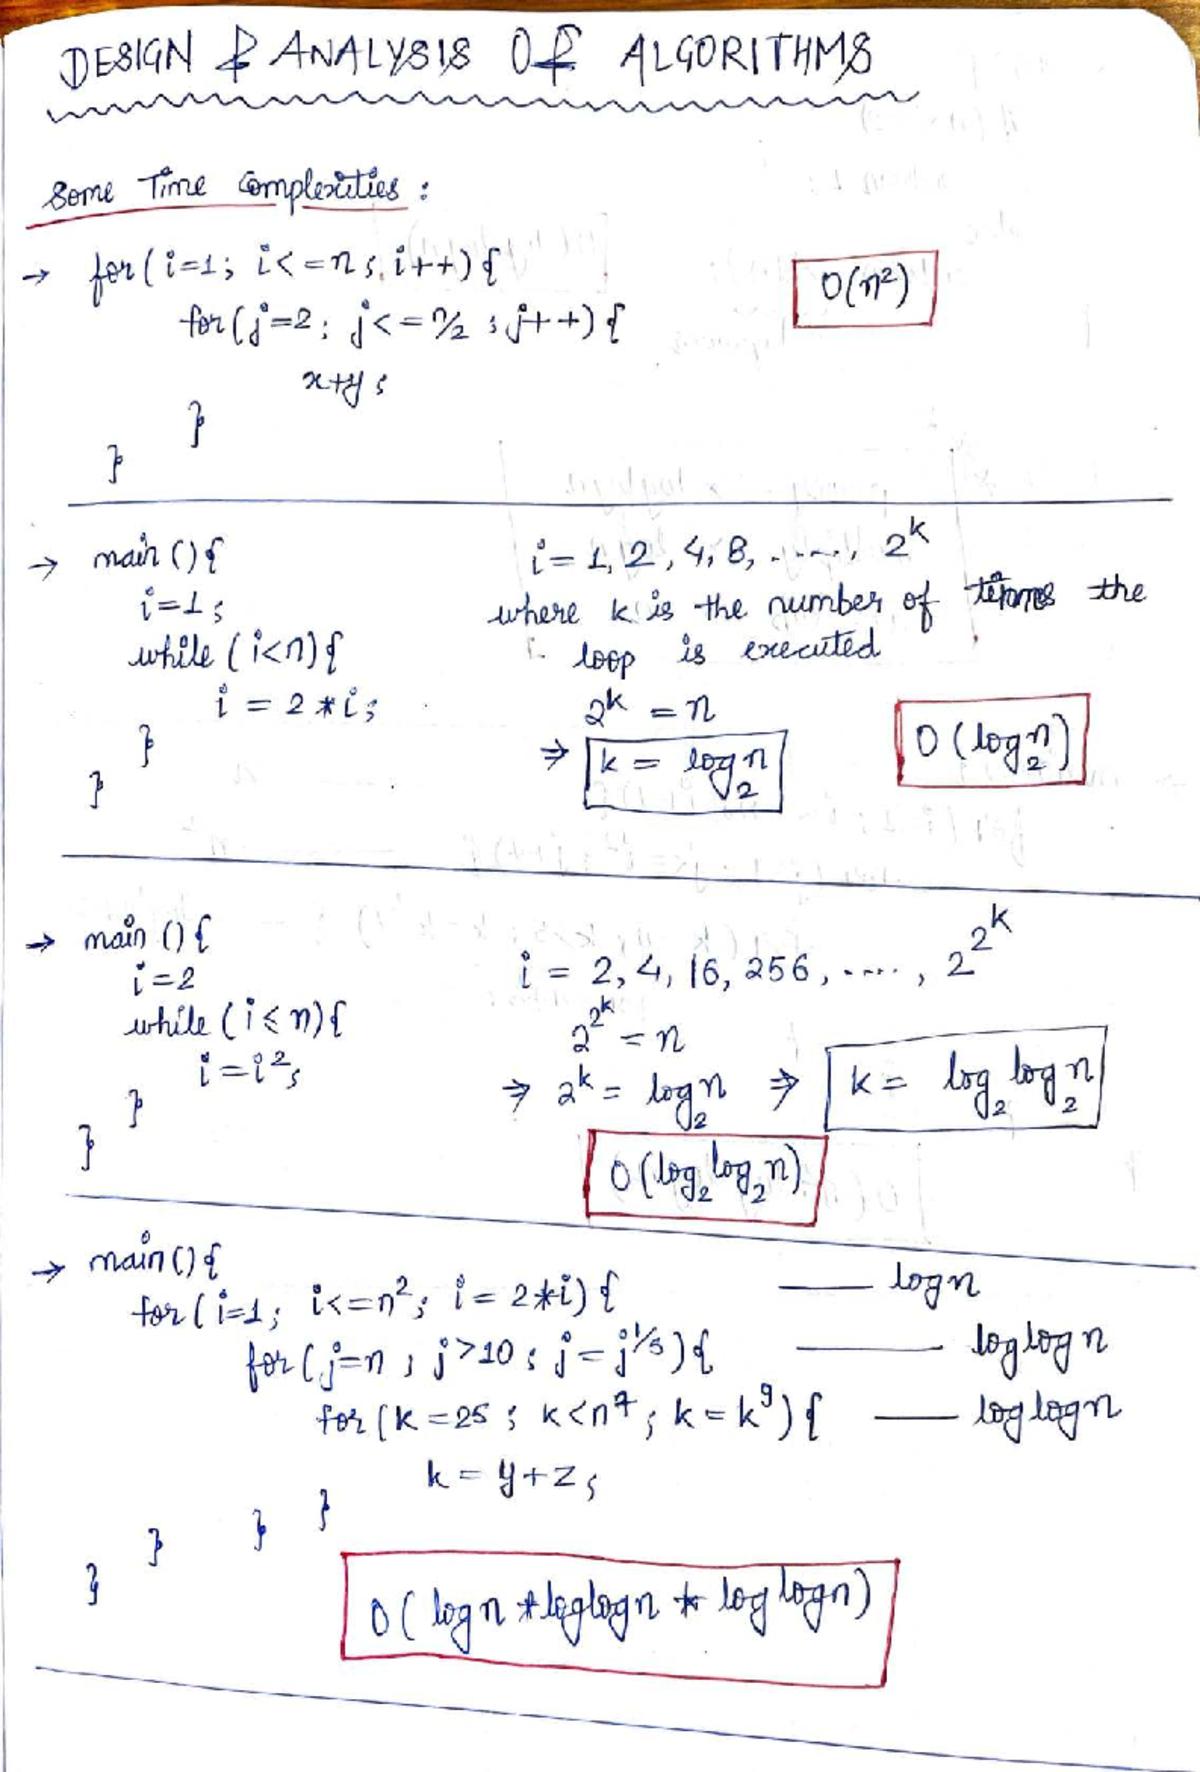 DESIGN & ANALYSIS OF ALGORITHMS
Some Time Complexities :
→ for(i=1; i<=n; i++){
O(n²)
for(j=2; j<=n/2; j++){
x+y;
}
}
→ main(){
i = 1, 2, 4, 8, ....., 2^k
i=1;
where k is the number of terms the
while(i<n){
loop is executed
i = 2*i;
2^k = n
}
⇒ k = log₂n
O(log₂n)
}
→ main(){
i = 2, 4, 16, 256, ....., 2^2^k
i=2
while(i≤n){
2^2^k = n
i=i²;
⇒ 2^k = log₂n ⇒ k = log₂log₂n
}
}
O(log₂log₂n)
→ main(){
for(i=1; i<=n²; i=2*i){ —— logn
for(j=n; j>10; j=j^1/5){ —— loglogn
for(k=25; k<n⁷; k=k⁹){ —— loglogn
k=y+z;
}
}
}
}
O(logn*loglogn*loglogn)